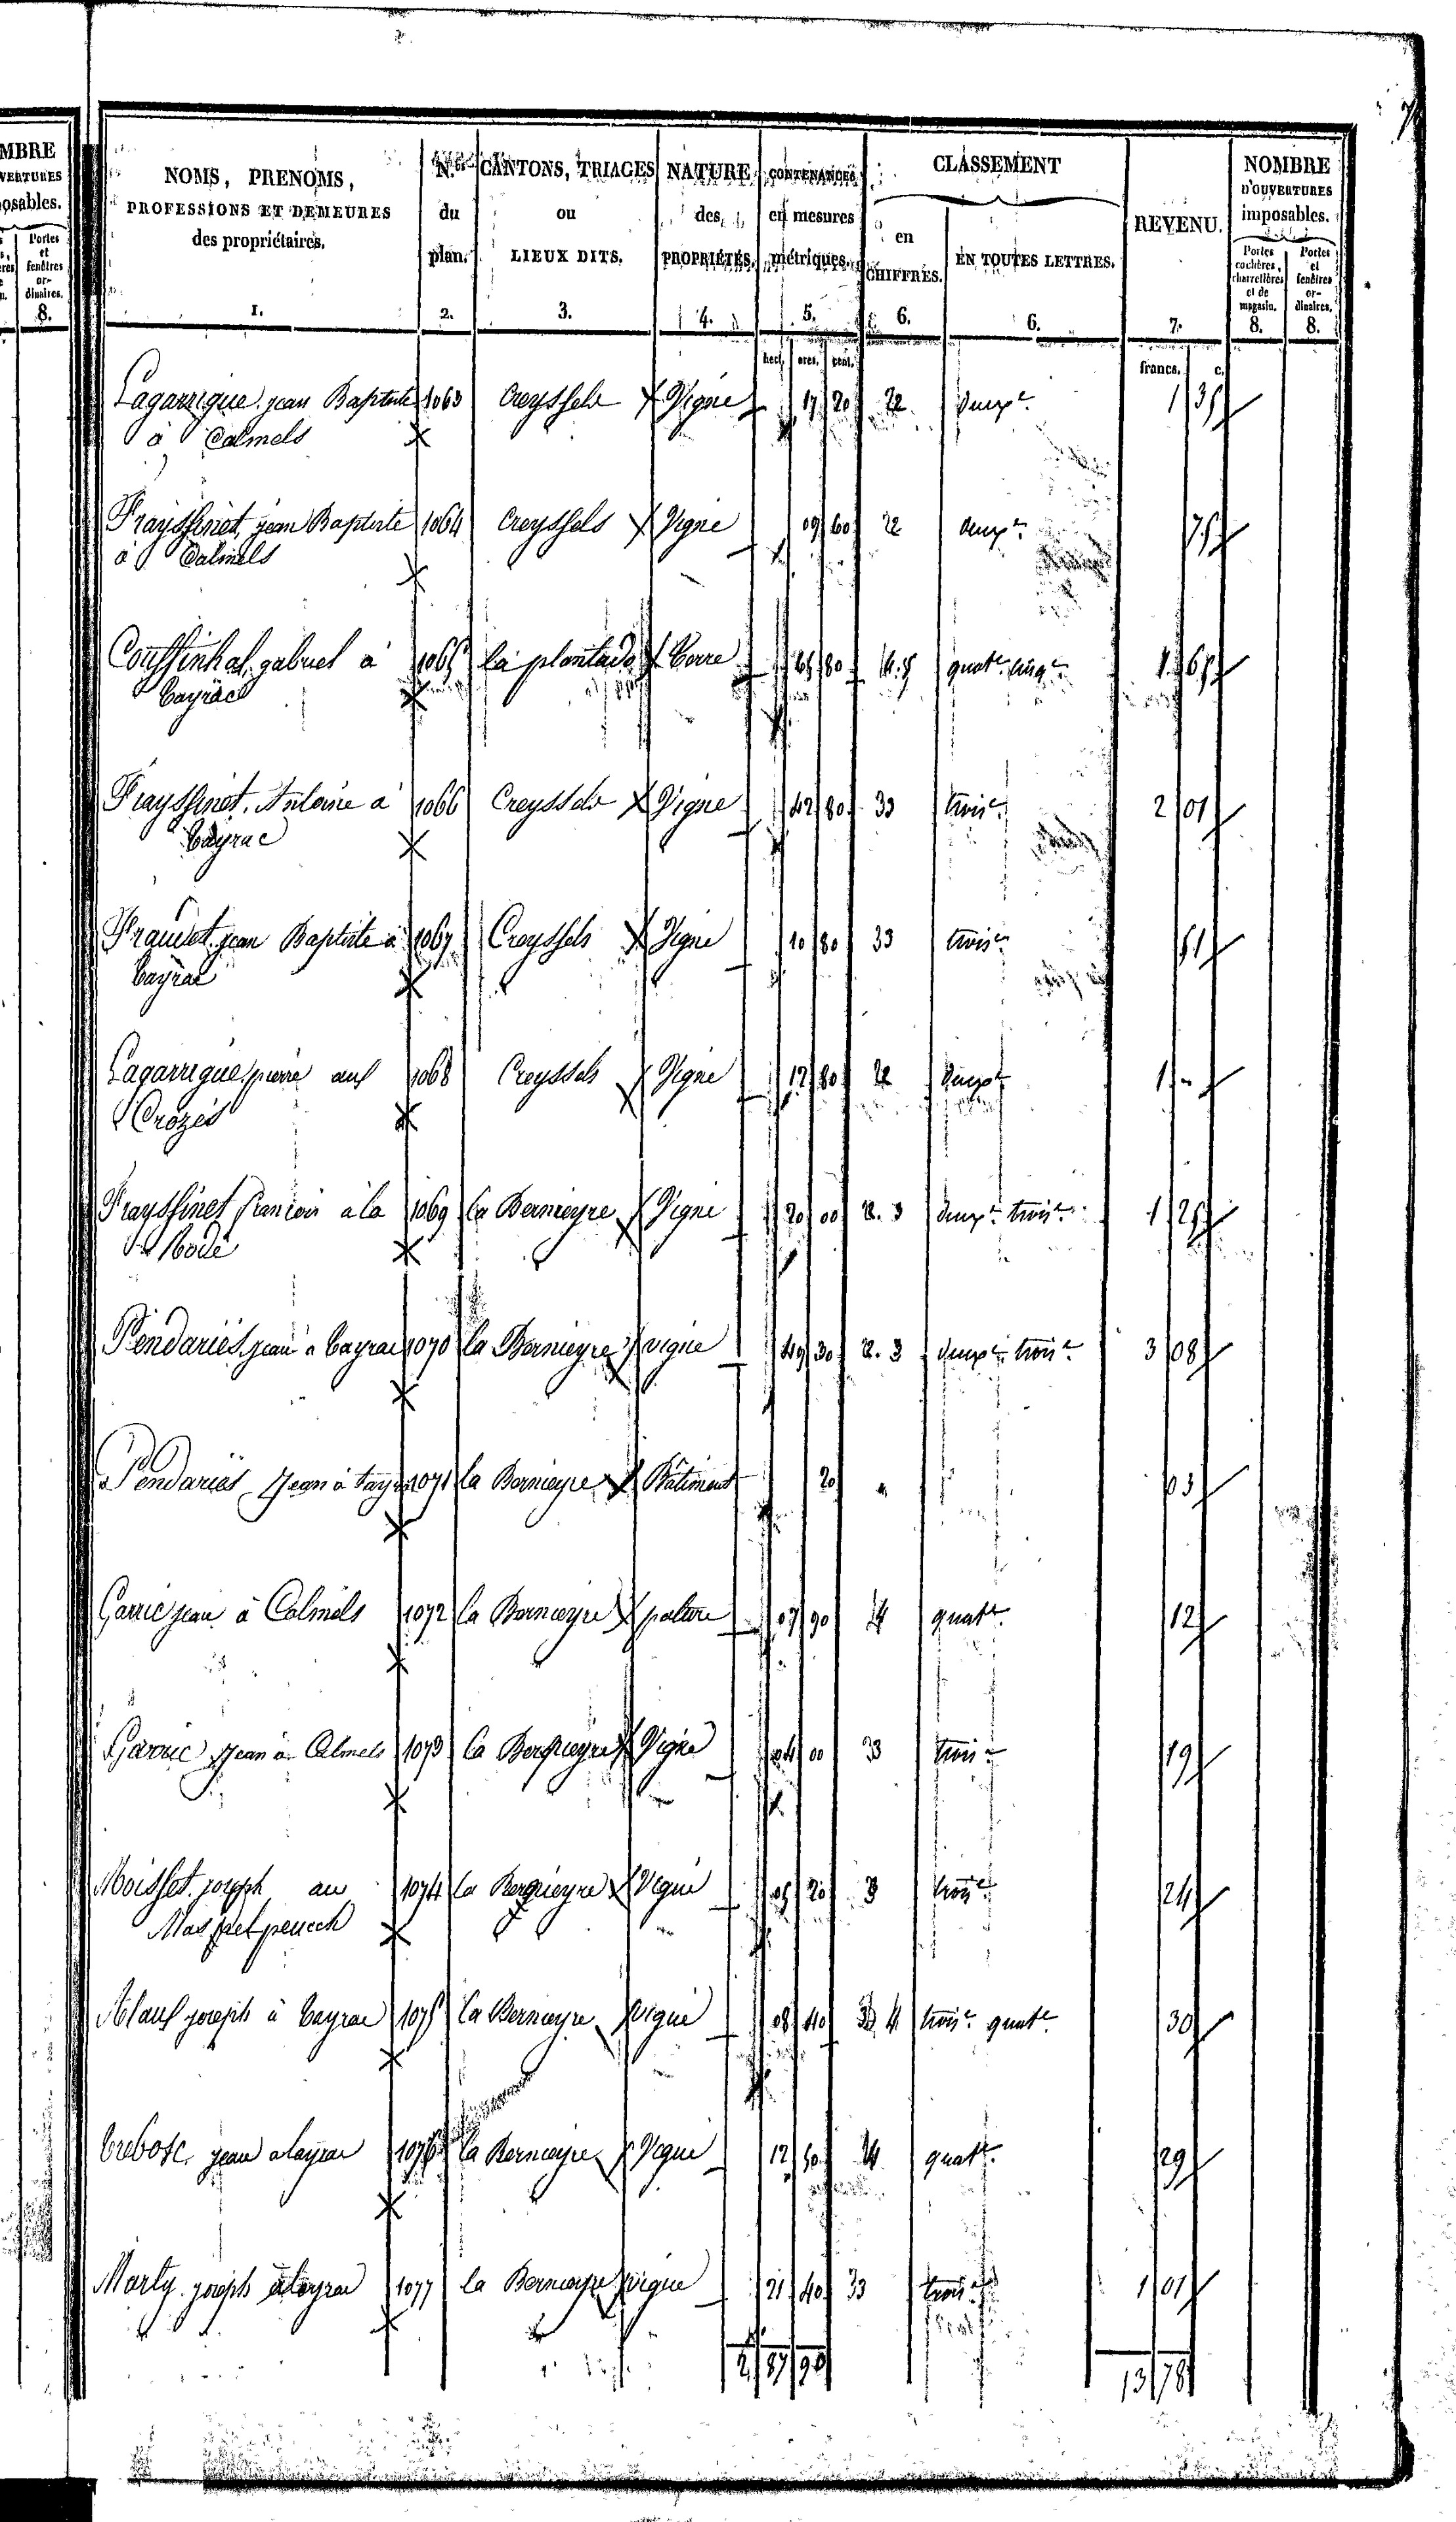 MBRE
VERTURES
osables.
Portes
et
fenêtres
or-
dinaires.
8.
NOMS, PRENOMS,
PROFESSIONS ET DEMEURES
des propriétaires.
1.
N.os
du
plan.
2.
CANTONS, TRIAGES
ou
LIEUX DITS.
3.
NATURE
des
PROPRIÉTÉS.
4.
CONTENANCES
en mesures
métriques.
5.
CLASSEMENT
en
CHIFFRES.
6.
EN TOUTES LETTRES.
6.
REVENU.
7.
NOMBRE
D'OUVERTURES
imposables.
Portes
cochères,
charretières
et de
magasin.
8.
Portes
et
fenêtres
or-
dinaires.
8.
hect. ares. cent. francs. c.
Lagarrigue jean Baptiste 1063 Creyssels Vigne 17 20 22 deuxe 1 35
à Calmels
Frayssinet jean Baptiste 1064 Creyssels Vigne 09 60 22 deuxe 75
à Calmels
Coussinhal gabriel à 1065 la plantade Terre 65 80 4.5 quate cinqe 1 65
Cayrac
Frayssinet Antoine à 1066 Creyssels Vigne 42 80 33 troise 2 01
Cayrac
Jean Baptiste à 1067 Creyssels Vigne 10 80 33 troise 51
Cayrac
Lagarrigue pierre aux 1068 Creyssels Vigne 12 80 22 deuxe 1 "
Crozes
Frayssinet francois à la 1069 la Bernieyre Vigne 20 00 2.3 deuxe troise 1 25
Rode
Pendariès jean à Cayrac 1070 la Bernieyre vigne 49 30 2.3 deuxe troise 3 08
Pendariès Jean à Cayrac 1071 la Bernieyre Bâtiment 20 " 03
Garric jean à Calmels 1072 la Bernieyre pature 07 90 4 quate 12
Garric Jean à Calmels 1073 la Bernieyre Vigne 04 00 33 troise 19
Moisset joseph au 1074 la Bernieyre Vigne 05 20 3 troise 24
Mas del peuech
joseph à Cayrac 1075 la Bernieyre vigne 08 40 3.4 troise quate 30
Trebosc jean à Cayrac 1076 la Bernieyre Vigne 12 50 4 quate 29
Marty joseph à Cayrac 1077 la Bernieyre vigne 21 40 33 troise 1 01
2 87 90 13 78